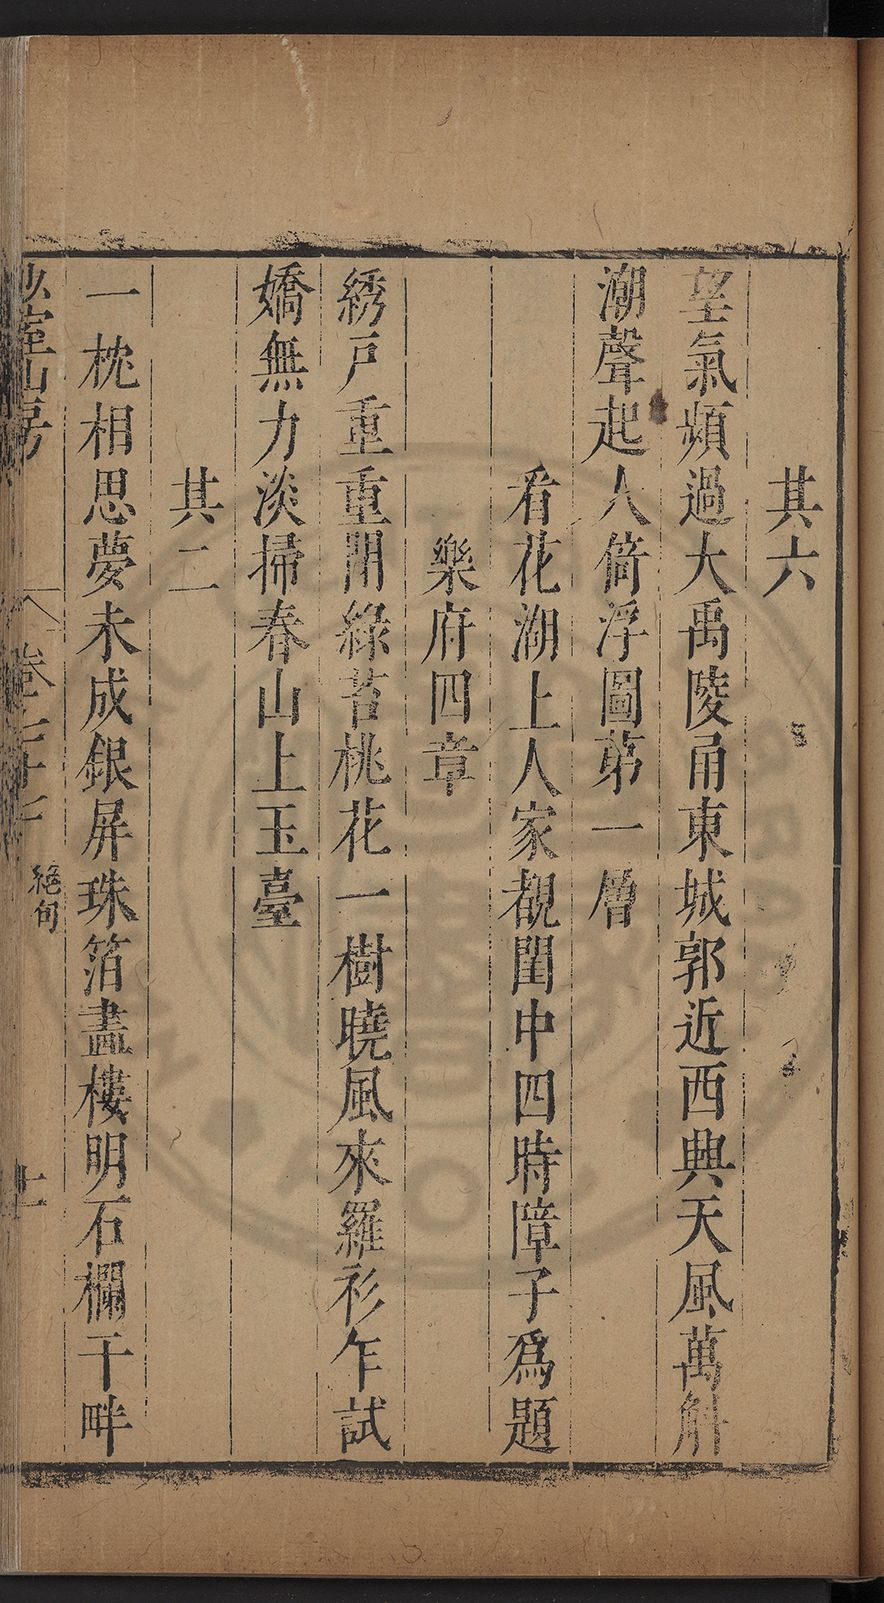 其六
望氣頻過大禹陵甬東城郭近西興天風萬斛
潮聲起人倚浮圖第一層
看花湖上人家覩閨中四時障子爲題
樂府四章
綉戸重重閉綠苔桃花一樹曉風來羅衫乍試
嬌無力淡掃春山上玉臺
其二
一枕相思夢未成銀屏珠箔畵樓明石欄干畔
室山房
卷七十
絕句